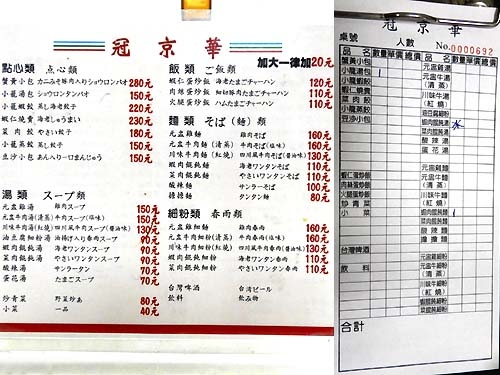 冠京華
加大一律加20元
點心類 点心類
蟹黃小包 カニみそ豚肉入りショウロンパオ 280元
小籠湯包 ショウロンタンパオ 150元
小籠蝦餃 蒸し海老餃子 220元
蝦仁燒賣 海老しゅうまい 230元
菜肉餃 やさい餃子 180元
小籠蒸餃 蒸し餃子 150元
豆沙小包 あん入り一口まんじゅう 150元
湯類 スープ類
元盅雞湯 鶏肉スープ 150元
元盅牛肉湯(清蒸) 牛肉スープ(塩味) 150元
川味牛肉湯(紅燒) 四川風牛肉スープ(醤油味) 130元
油豆腐細粉湯 油揚げ入り春雨スープ 90元
蝦肉餛飩湯 海老ワンタンスープ 90元
菜肉餛飩湯 やさいワンタンスープ 90元
酸辣湯 サンラータン 70元
蛋花湯 たまごスープ 70元
炒青菜 野菜炒め 80元
小菜 一品 40元
飯類 ご飯類
蝦仁蛋炒飯 海老たまごチャーハン 120元
肉絲蛋炒飯 細切豚肉たまごチャーハン 110元
火腿蛋炒飯 ハムたまごチャーハン 110元
麵類 そば(麺)類
元盅雞麵 鶏肉そば 160元
元盅牛肉麵(清蒸) 牛肉そば(塩味) 160元
川味牛肉麵(紅燒) 四川風牛肉そば(醤油味) 130元
蝦肉餛飩麵 海老ワンタンそば 110元
菜肉餛飩麵 やさいワンタンそば 110元
酸辣麵 サンラーそば 100元
擔擔麵 タンタン麺 80元
細粉類 春雨類
元盅雞細粉 鶏肉春雨 160元
元盅牛肉細粉(清蒸) 牛肉春雨(塩味) 160元
川味牛肉細粉(紅燒) 四川風牛肉春雨(醤油味) 130元
蝦肉餛飩細粉 海老ワンタン春雨 110元
菜肉餛飩細粉 やさいワンタン春雨 110元
台灣啤酒 台湾ビール
飲料 飲み物
冠京華
桌號 人數 No.0000692
品名 數量 單價 總價 品名 數量 單價 總價
蟹黃小包
小籠湯包 1
小籠蝦餃
蝦仁燒賣
菜肉餃
小籠蒸餃
豆沙小包
蝦仁蛋炒飯
肉絲蛋炒飯
火腿蛋炒飯
炒青菜
小菜
台灣啤酒
飲料
元盅雞湯
元盅牛湯
(清蒸)
川味牛湯
(紅燒)
油豆腐細粉湯
蝦肉餛飩湯
菜肉餛飩湯
酸辣湯
蛋花湯
元盅雞麵
元盅牛麵
(清蒸)
川味牛麵
(紅燒)
蝦肉餛飩麵 1
菜肉餛飩麵
酸辣麵
擔擔麵
元盅雞細粉
元盅牛細粉
(清蒸)
川味牛細粉
(紅燒)
蝦餛飩細粉
菜餛飩細粉
合計